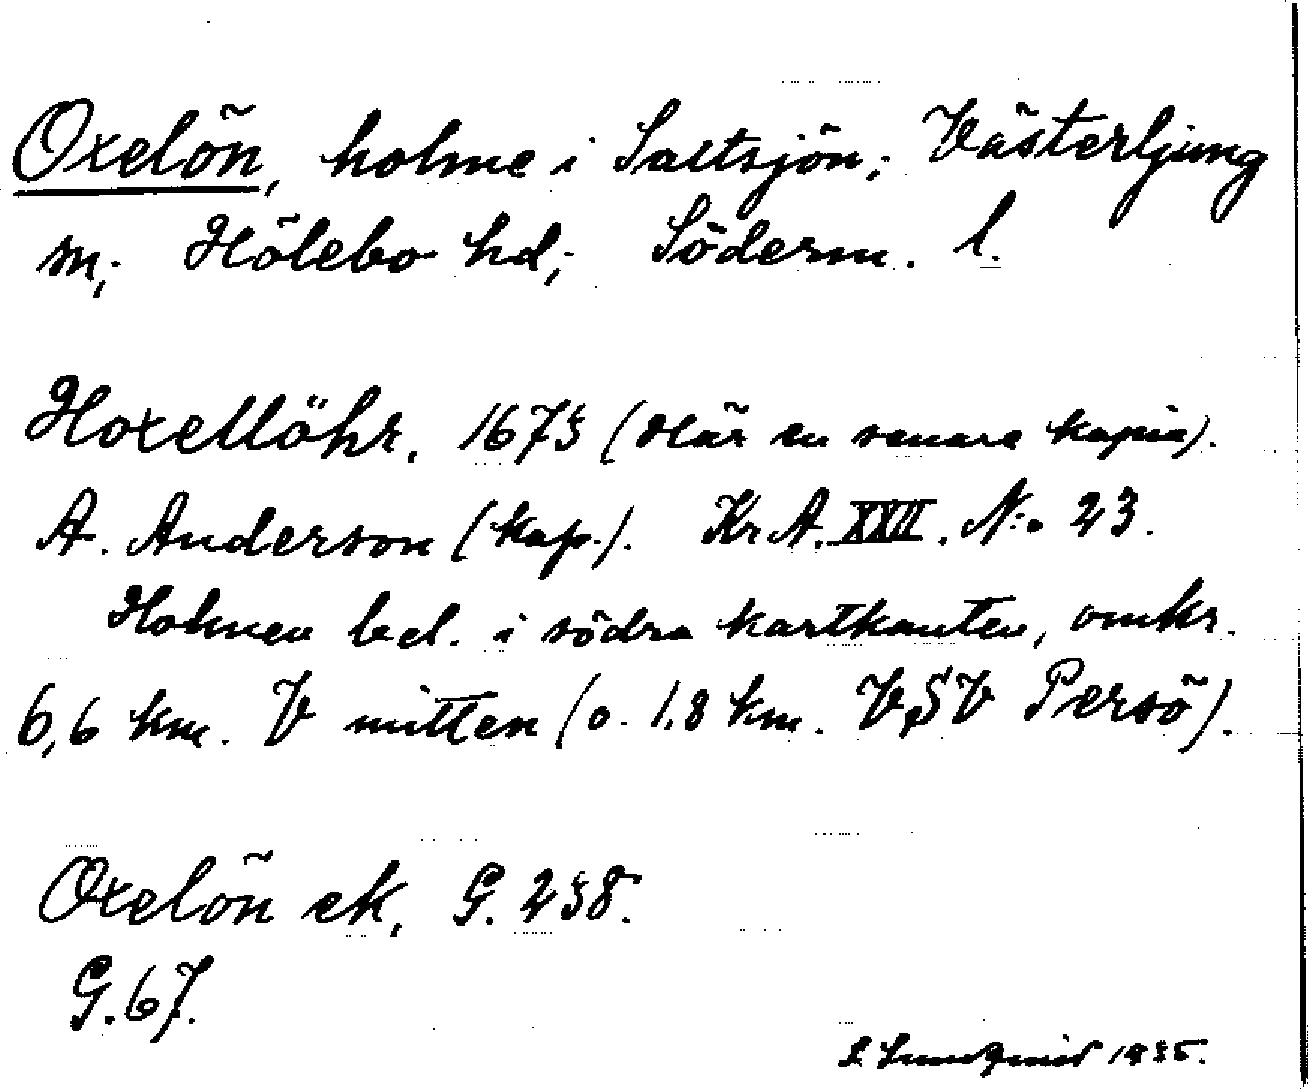 Oxelön, holme i Saltsjön; Västerljung
sn; Hölebo hd; Söderm. l.
Hoxellöhr. 1673 (Här en senare kopia).
A. Anderson (kap.). Kr.A. XXII. N:o 23.
Holmen bel. i södra kartkanten, omkr.
6,6 km. V mitten (o. 1,8 km. VSV Persö).
Oxelön ek. G. 238.
G. 67.
S. Lundqvist 1935.